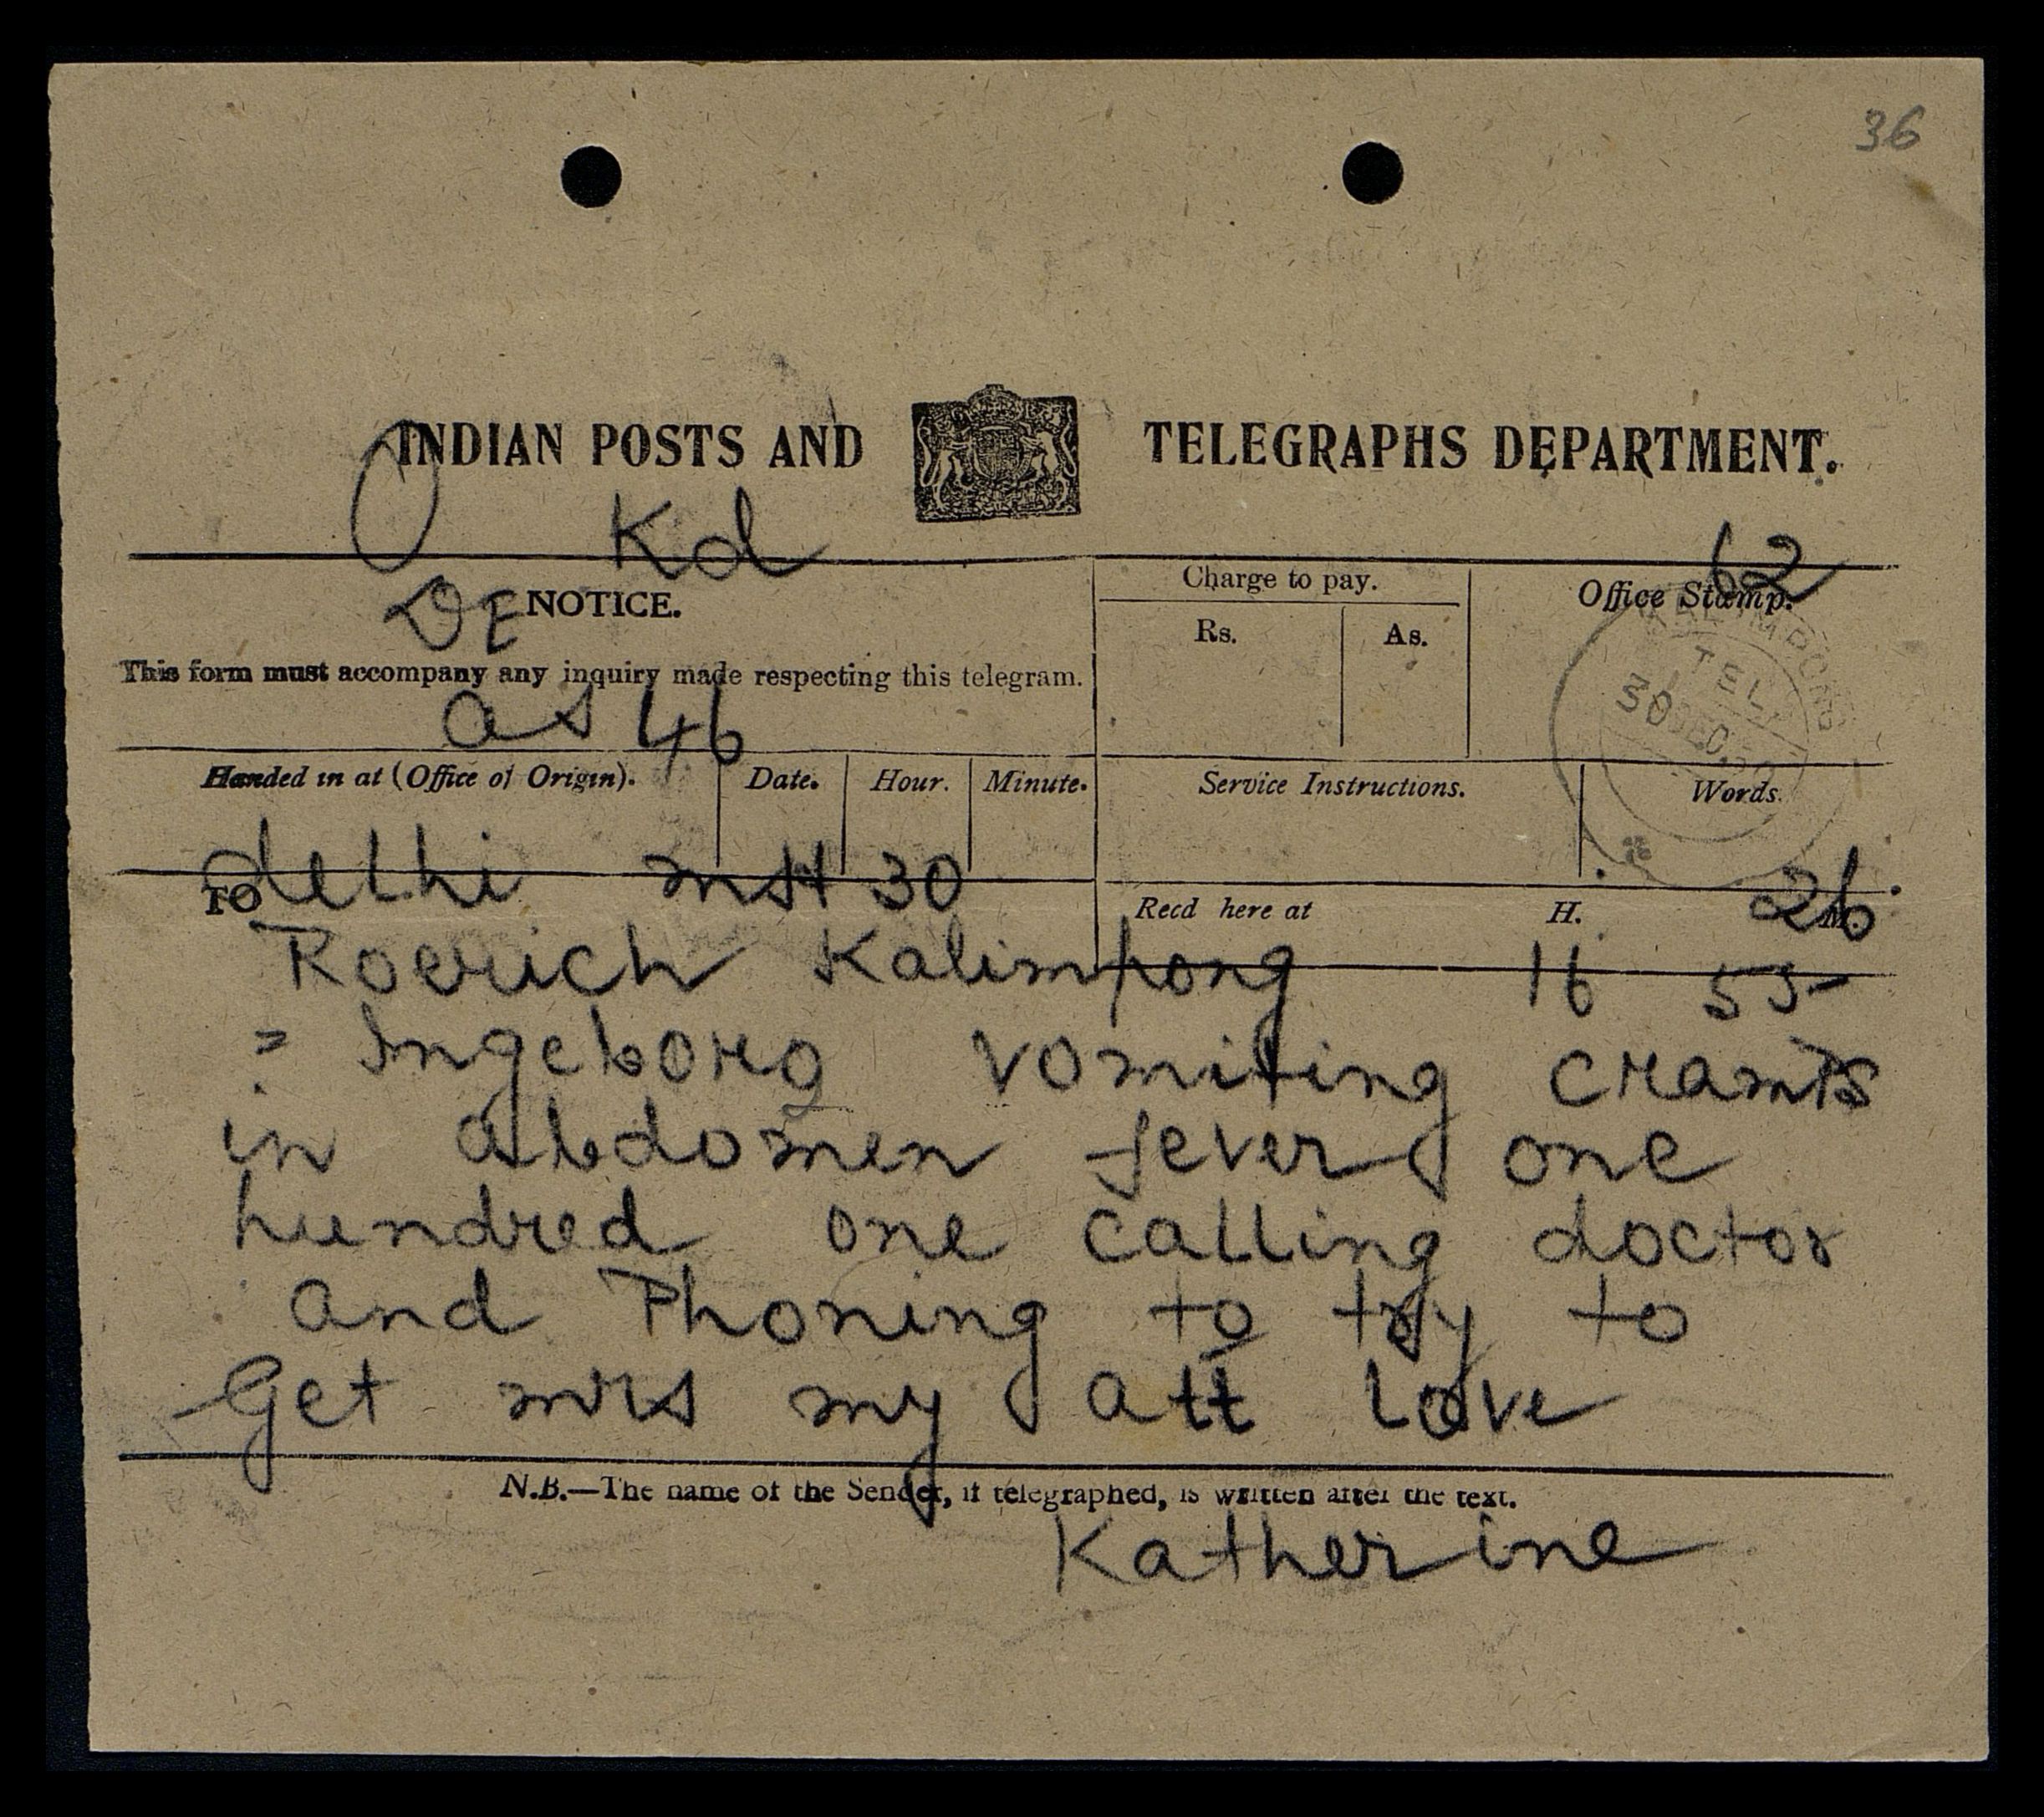 36
INDIAN POSTS AND TELEGRAPHS DEPARTMENT.
Kd
62
DE NOTICE.
Charge to pay.
Office Stamp.
Rs. As.
This form must accompany any inquiry made respecting this telegram.
TEL
30 DEC
as 46
Handed in at (Office of Origin). Date. Hour. Minute. Service Instructions. Words.
delhi 30
26
TO
Recd here at H. M.
Roerich Kalimpong 16 55
= Ingeborg vomiting cramps
in abdomen fever one
hundred one calling doctor
and Phoning to try to
Get mrs my att love
N.B.—The name of the Sender, if telegraphed, is written after the text.
Katherine